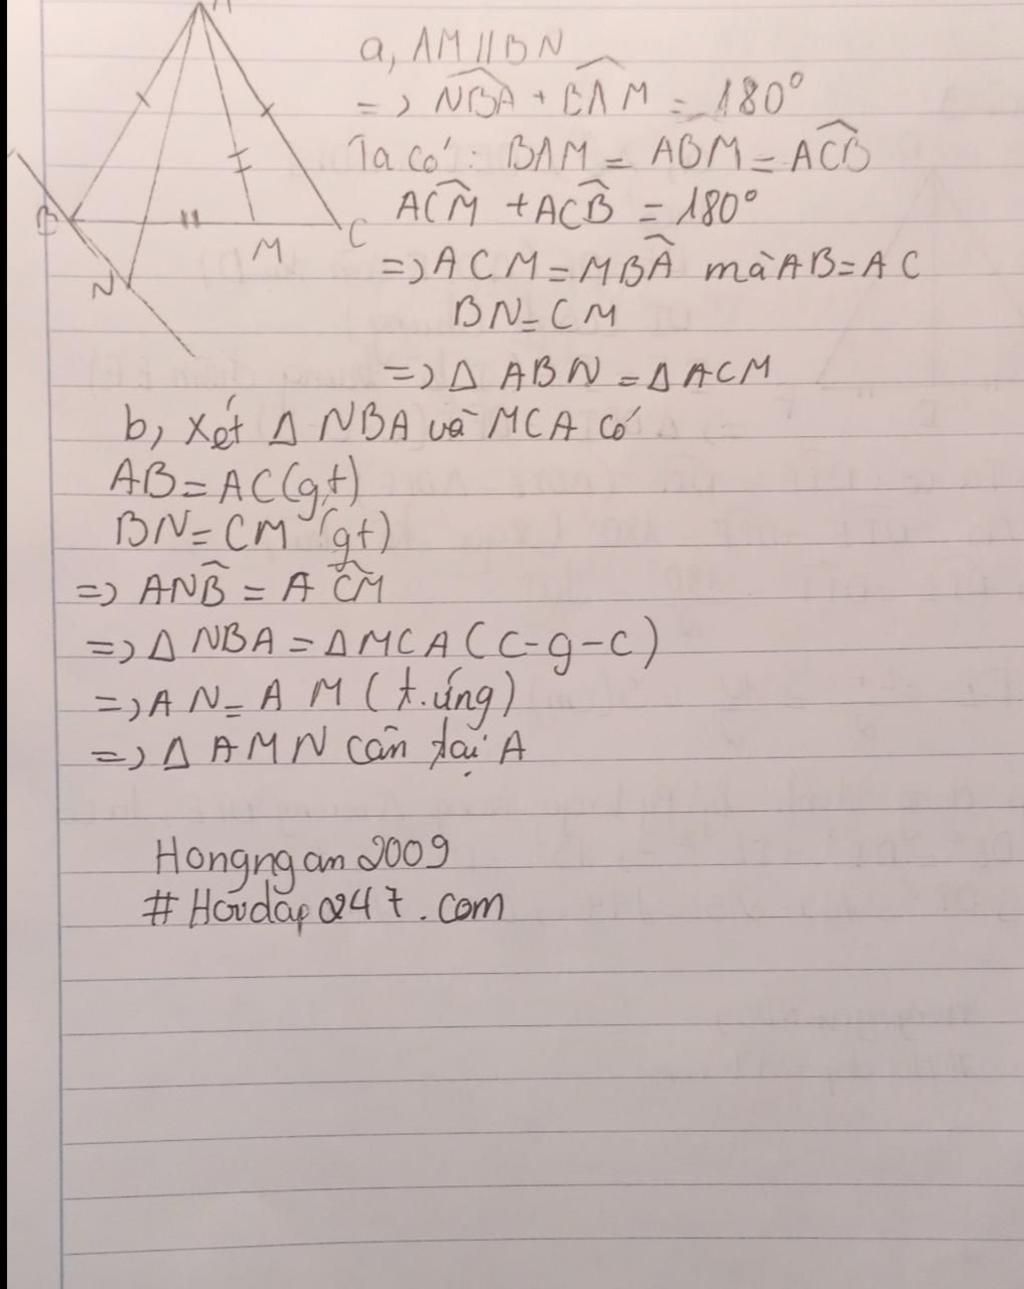 A
B
N
M
C
a, AM // BN
=> NBA + BAM = 180°
Ta có: BAM = ABM = ACB
ACM + ACB = 180°
=> ACM = MBA mà AB = AC
BN = CM
=> Δ ABN = Δ ACM
b, Xét Δ NBA và MCA có
AB = AC (gt)
BN = CM (gt)
=> ANB = ACM
=> Δ NBA = Δ MCA (c-g-c)
=> AN = AM (t.ứng)
=> Δ AMN cân tại A
Hongngan2009
#Hoidap247.com